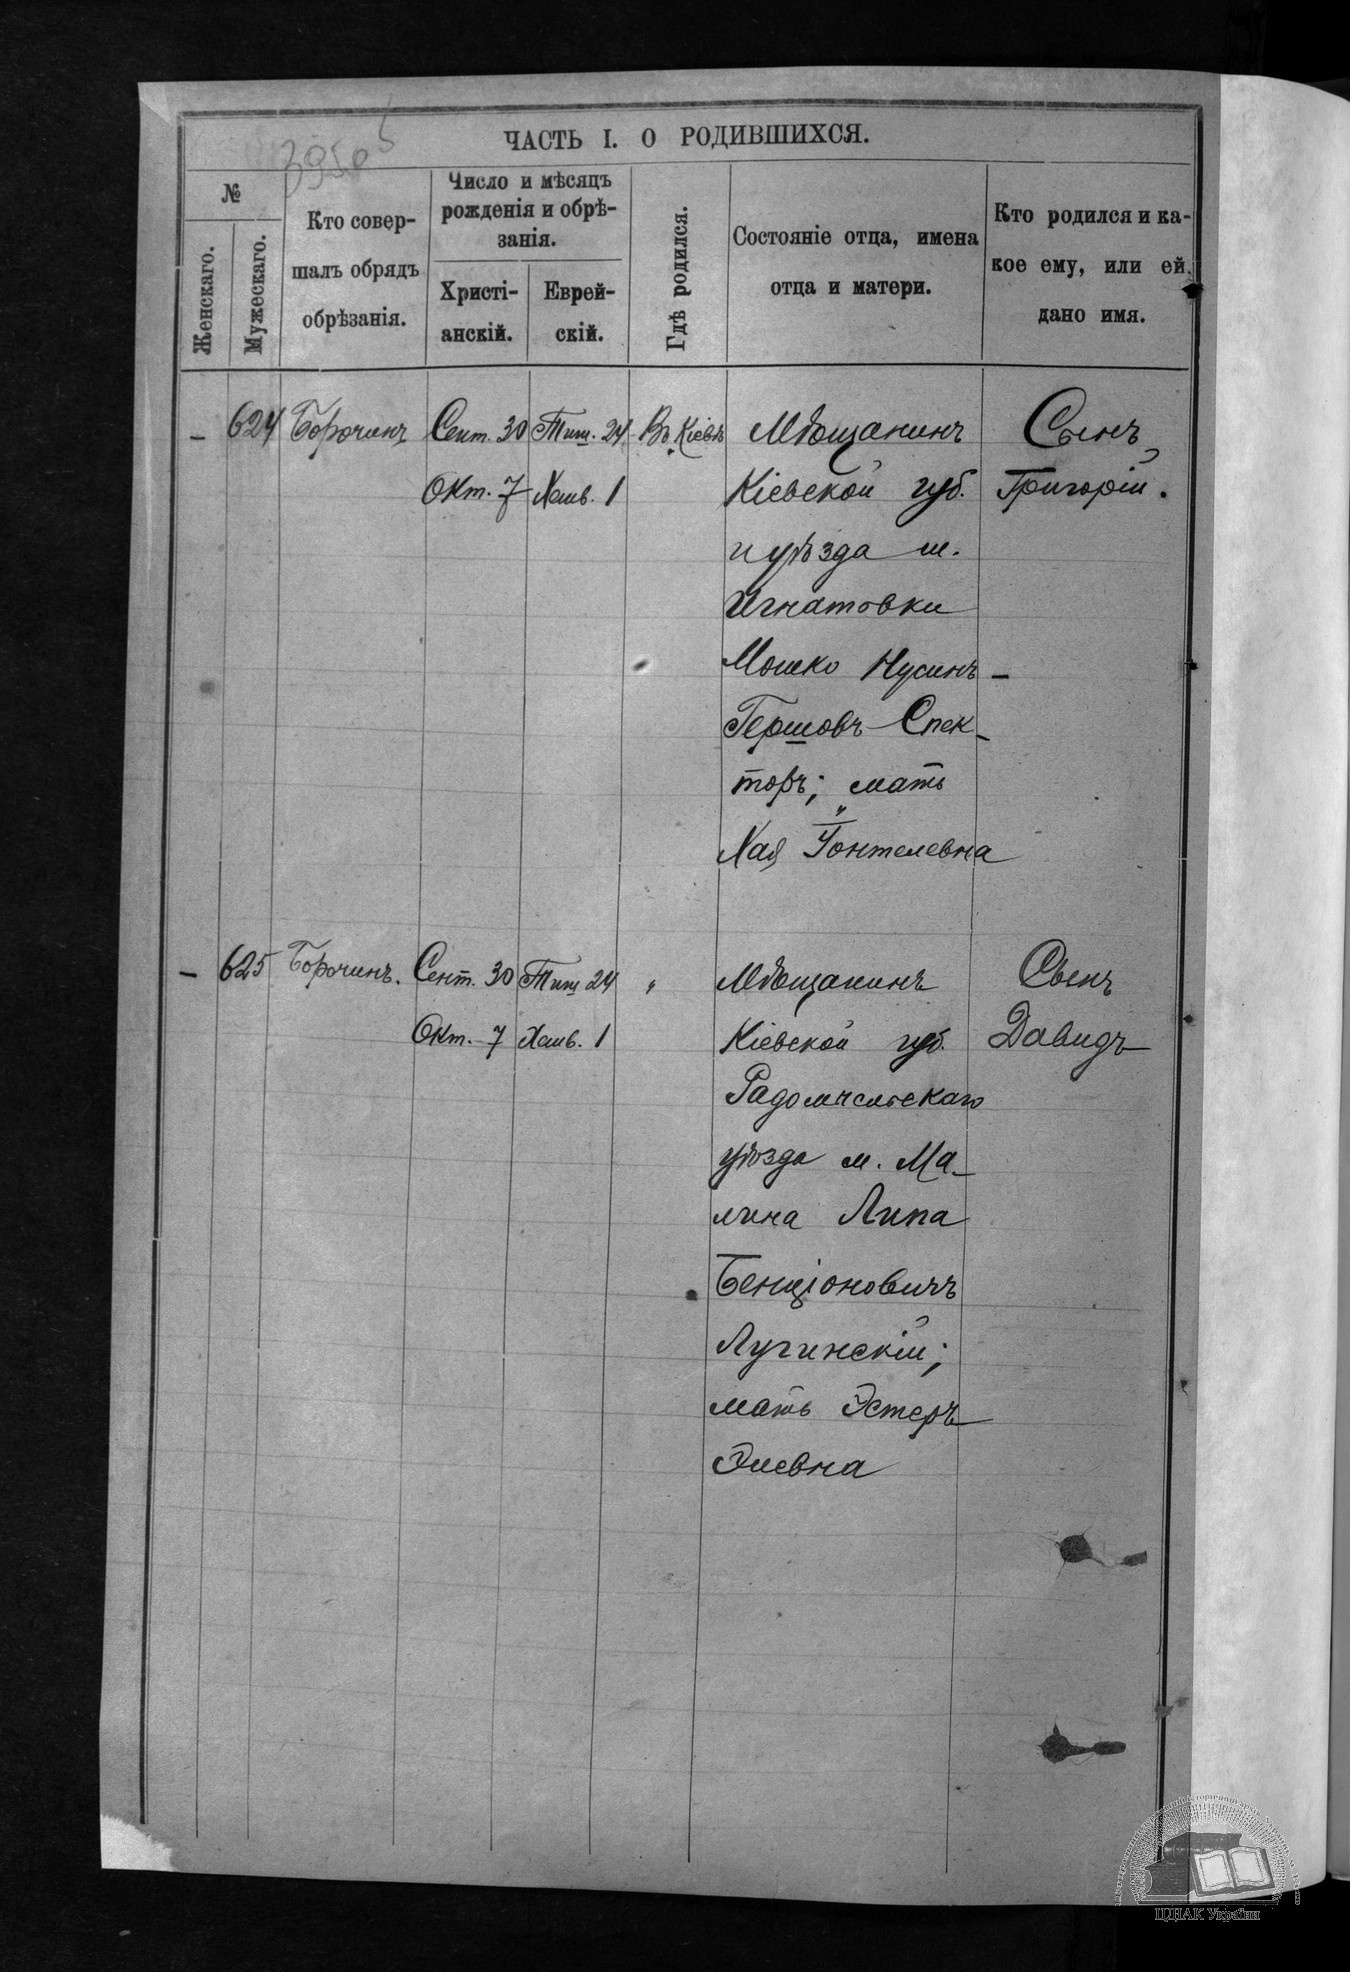 39505
ЧАСТЬ I. О РОДИВШИХСЯ.
№
Женскаго.
Мужескаго.
Кто совер-
шалъ обрядъ
обрѣзанія.
Число и мѣсяцъ
рожденія и обрѣ-
занія.
Христі-
анскій.
Еврей-
скій.
Гдѣ родился.
Состояніе отца, имена
отца и матери.
Кто родился и ка-
кое ему, или ей
дано имя.
– 624 Борочинъ Сент. 30 Тиш. 24 Въ Кіевѣ Мѣщанинъ Сынъ
Окт. 7 Хешв. 1 Кіевской губ. Григорій.
и уѣзда м.
Игнатовки
Мошко Нусинъ –
Гершовъ Спек-
торъ; мать
Хая Іонтелевна
– 625 Борочинъ. Сент. 30 Тиш 24 " Мѣщанинъ Сынъ
Окт. 7 Хешв. 1 Кіевской губ. Давидъ
Радомысльскаго
уѣзда м. Ма-
лина Липа
Бенціоновичъ
Лугинскій;
мать Эстеръ
Элевна
ЦДІАК України